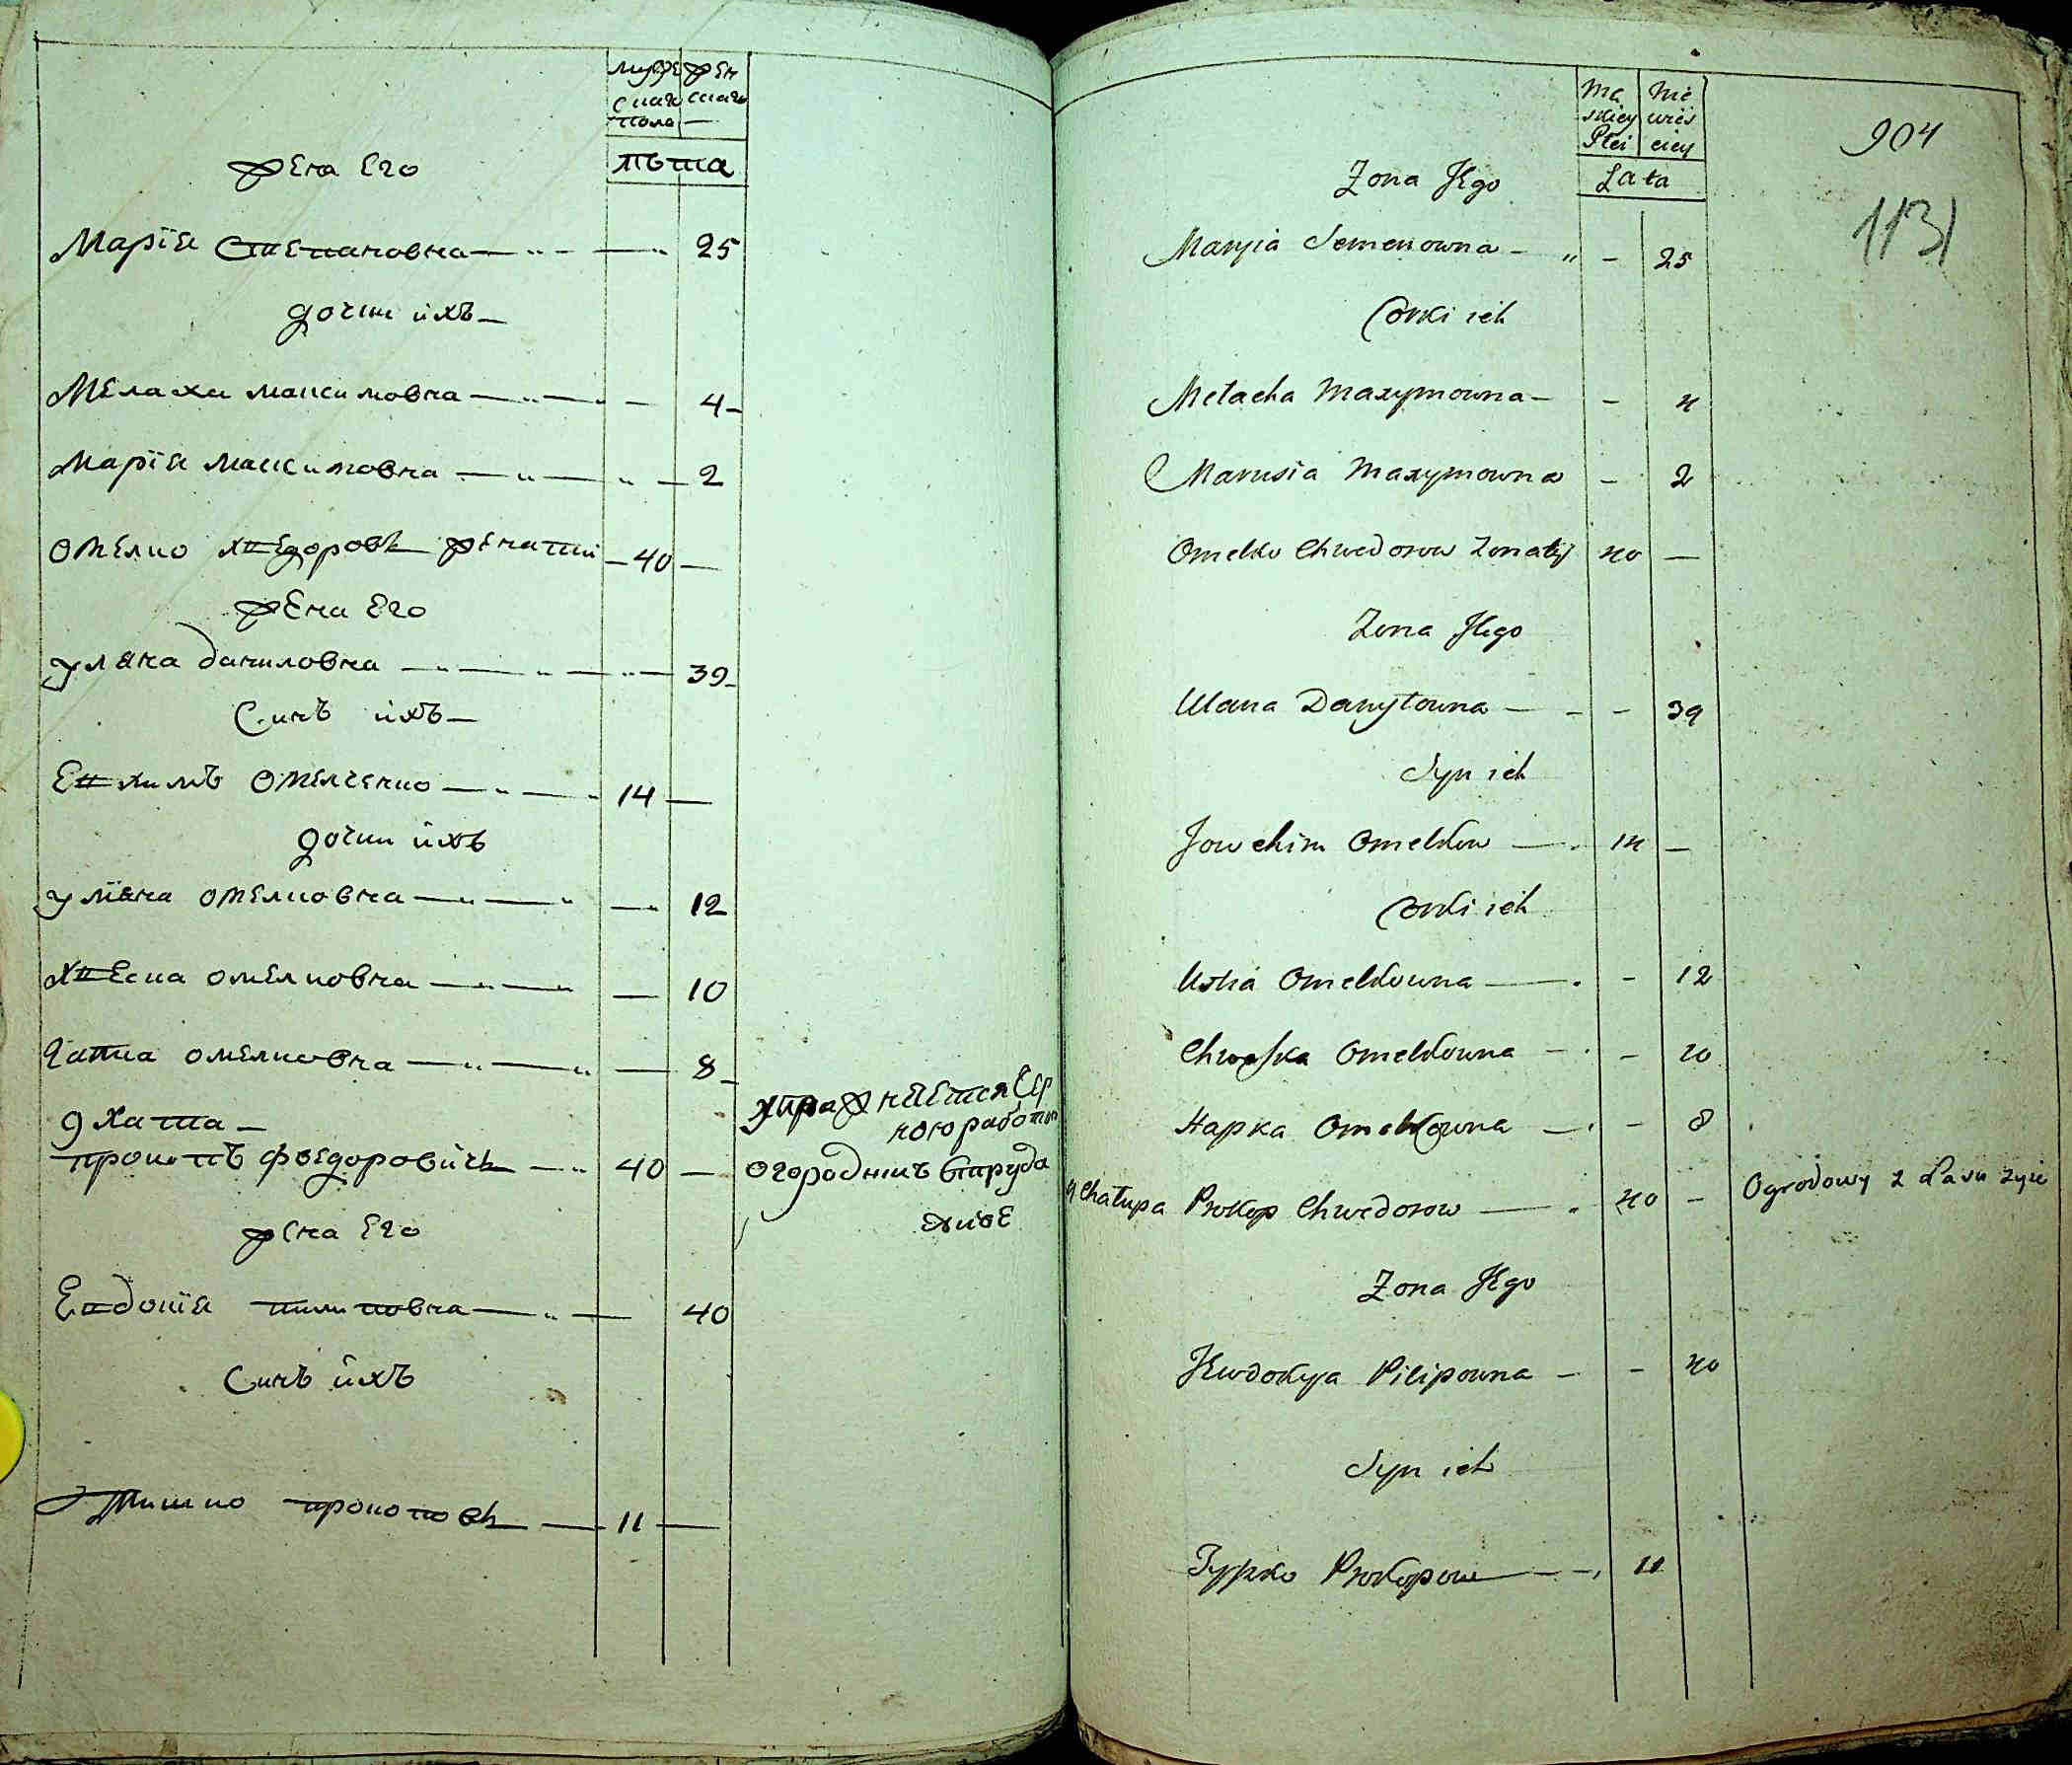 муже жен
скаго скаго
пола —
лѣта
жена Его
Марїя Степановна — 25
дочки ихъ —
Мелаха максимовна — 4
Марїя максимовна — 2
Омелко хведоровъ женатїи 40 —
жена Его
уляна даниловна — 39
Синъ ихъ —
Евхимъ Омелченко — 14 —
дочки ихъ
уляна омелковна — 12
хвеска омелковна — 10
Гапка омелковна — 8
9 хата —
прокопъ фведоровичъ — 40 —
огородникъ
жена Его
Евдокїя пилиповна — 40
Синъ ихъ
Тишко прокоповъ — 11 —
Mę Nie
skiey wies
Płci ciey
Lata
904
1131
Zona Jego
Maryia Semenowna — 25
Corki ich
Mełacha Maxymowna — 4
Marusia Maxymowna — 2
Omelko Chwedorow Zonaty 40 —
Zona Jego
Ulana Danyłowna — 39
Syn ich
Jowchim Omelkow — 14 —
Corki ich
Ustia Omelkowna — 12
Chweska Omelkowna — 10
Hapka Omelkowna — 8
9 Chałupa Prokop Chwedorow — 40 — Ogrodowy z
Zona Jego
Jewdokyja Pilipowna — 40
Syn ich
Prokopow — 11